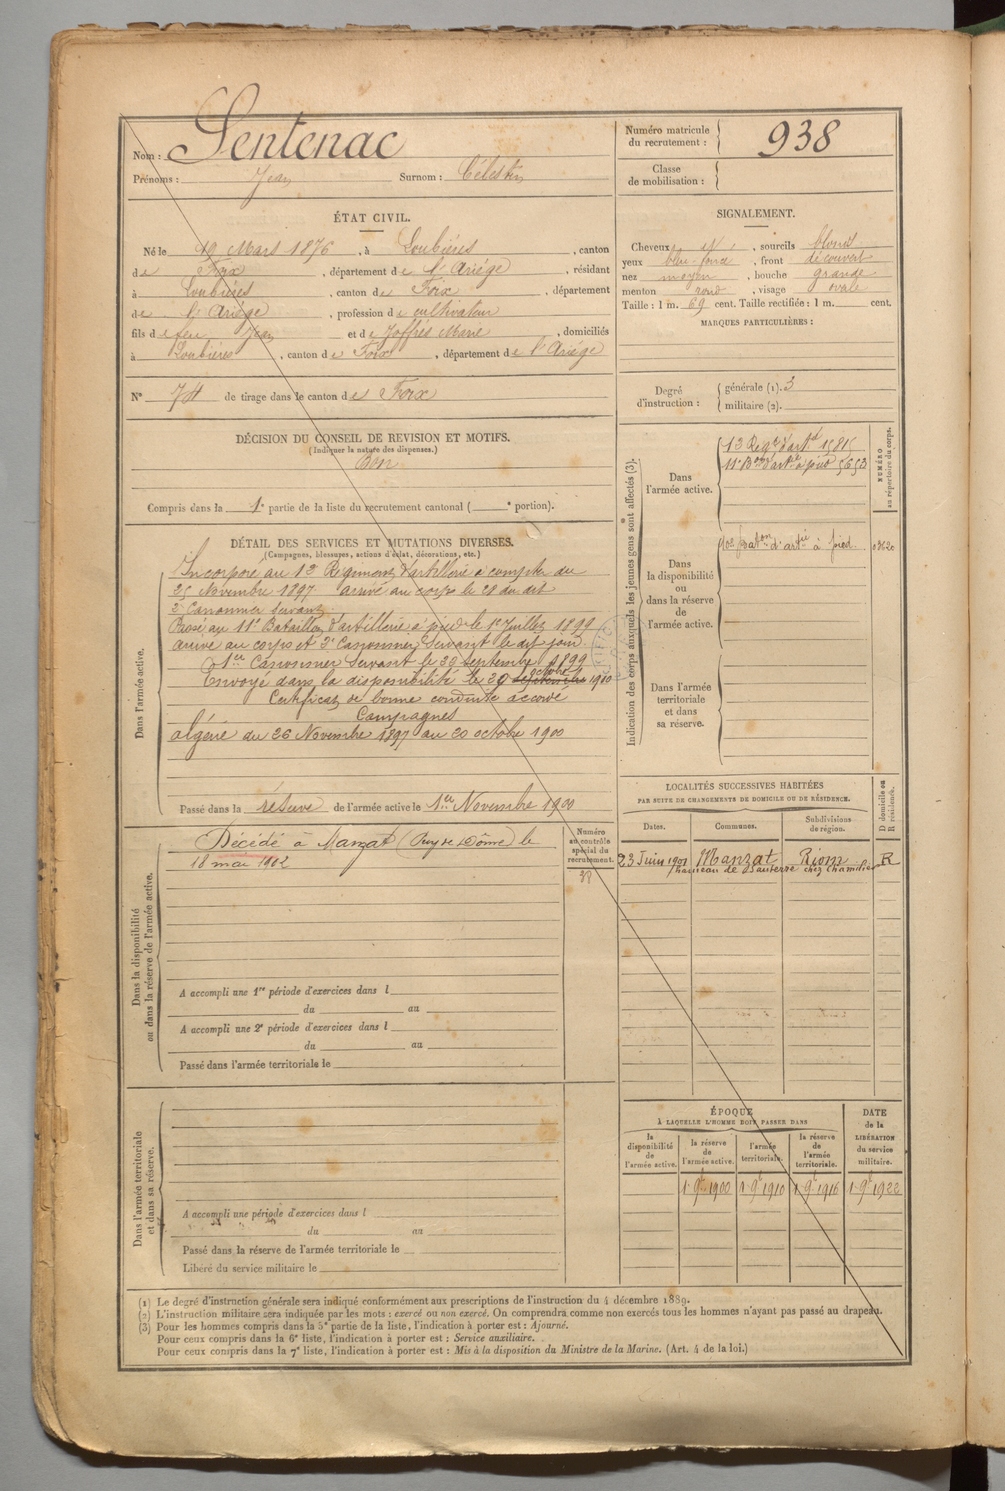 Nom : Sentenac
Prénoms : Jean Surnom : Célestin
Numéro matricule
du recrutement : 938
Classe
de mobilisation :
ÉTAT CIVIL.
Né le 19 Mars 1876, à Loubières, canton
de Foix, département de l'Ariége, résidant
à Loubières, canton de Foix, département
de l'Ariége, profession de cultivateur
fils de feu Jean et de Joffrès Marie, domiciliés
à Loubières, canton de Foix, département de l'Ariége
N° 74 de tirage dans le canton de Foix
SIGNALEMENT.
Cheveux, sourcils blonds
yeux bleu foncé, front découvert
nez moyen, bouche grande
menton rond, visage ovale
Taille : 1 m. 69 cent. Taille rectifiée : 1 m. cent.
MARQUES PARTICULIÈRES :
Degré
d'instruction :
générale (1). 3
militaire (2).
DÉCISION DU CONSEIL DE REVISION ET MOTIFS.
(Indiquer la nature des dispenses.)
Bon
Compris dans la 1e partie de la liste du recrutement cantonal ( e portion).
DÉTAIL DES SERVICES ET MUTATIONS DIVERSES.
(Campagnes, blessures, actions d'éclat, décorations, etc.)
Dans l'armée active.
Incorporé au 13 Régiment d'artillerie à compter du
25 Novembre 1897 arrivé au corps le 28 du dit
2e Canonnier servant.
Passé au 11e Bataillon d'artillerie à pied le 1er Juillet 1899
arrivé au corps et 2e Canonnier Servant le dit jour.
1er Canonnier Servant le 29 septembre 1899
Envoyé dans la disponibilité le 20 septembre octobre 1900
Certificat de bonne conduite accordé
Campagnes
Algérie du 26 Novembre 1897 au 20 octobre 1900
Passé dans la réserve de l'armée active le 1er Novembre 1900
Indication des corps auxquels les jeunes gens sont affectés (3).
NUMÉRO
au répertoire du corps.
Dans
l'armée active.
13 Régt d'artie 15815
11e Bon d'artie à pied 5653
Dans
la disponibilité
ou
dans la réserve
de
l'armée active.
Baton d'artie à pied
Dans l'armée
territoriale
et dans
sa réserve.
LOCALITÉS SUCCESSIVES HABITÉES
PAR SUITE DE CHANGEMENTS DE DOMICILE OU DE RÉSIDENCE.
D domicile ou
R résidence.
Dates. Communes. Subdivisions
de région.
23 Juin 1901 Manzat Riom R
hameau de chez
Dans la disponibilité
ou dans la réserve de l'armée active.
Numéro
au contrôle
spécial du
recrutement.
Décédé à Manzat (Puy de Dôme) le
18 mai 1902
A accompli une 1re période d'exercices dans l
du au
A accompli une 2e période d'exercices dans l
du au
Passé dans l'armée territoriale le
Dans l'armée territoriale
et dans sa réserve.
A accompli une période d'exercices dans l
du au
Passé dans la réserve de l'armée territoriale le
Libéré du service militaire le
ÉPOQUE
À LAQUELLE L'HOMME DOIT PASSER DANS
DATE
de la
LIBÉRATION
du service
militaire.
la
disponibilité
de
l'armée active.
la réserve
de
l'armée active.
l'armée
territoriale.
la réserve
de
l'armée
territoriale.
1 9e 1900 1 9e 1910 1 9e 1916 1 9e 1922
(1) Le degré d'instruction générale sera indiqué conformément aux prescriptions de l'instruction du 4 décembre 1889.
(2) L'instruction militaire sera indiquée par les mots : exercé ou non exercé. On comprendra comme non exercés tous les hommes n'ayant pas passé au drapeau.
(3) Pour les hommes compris dans la 5e partie de la liste, l'indication à porter est : Ajourné.
Pour ceux compris dans la 6e liste, l'indication à porter est : Service auxiliaire.
Pour ceux compris dans la 7e liste, l'indication à porter est : Mis à la disposition du Ministre de la Marine. (Art. 4 de la loi.)